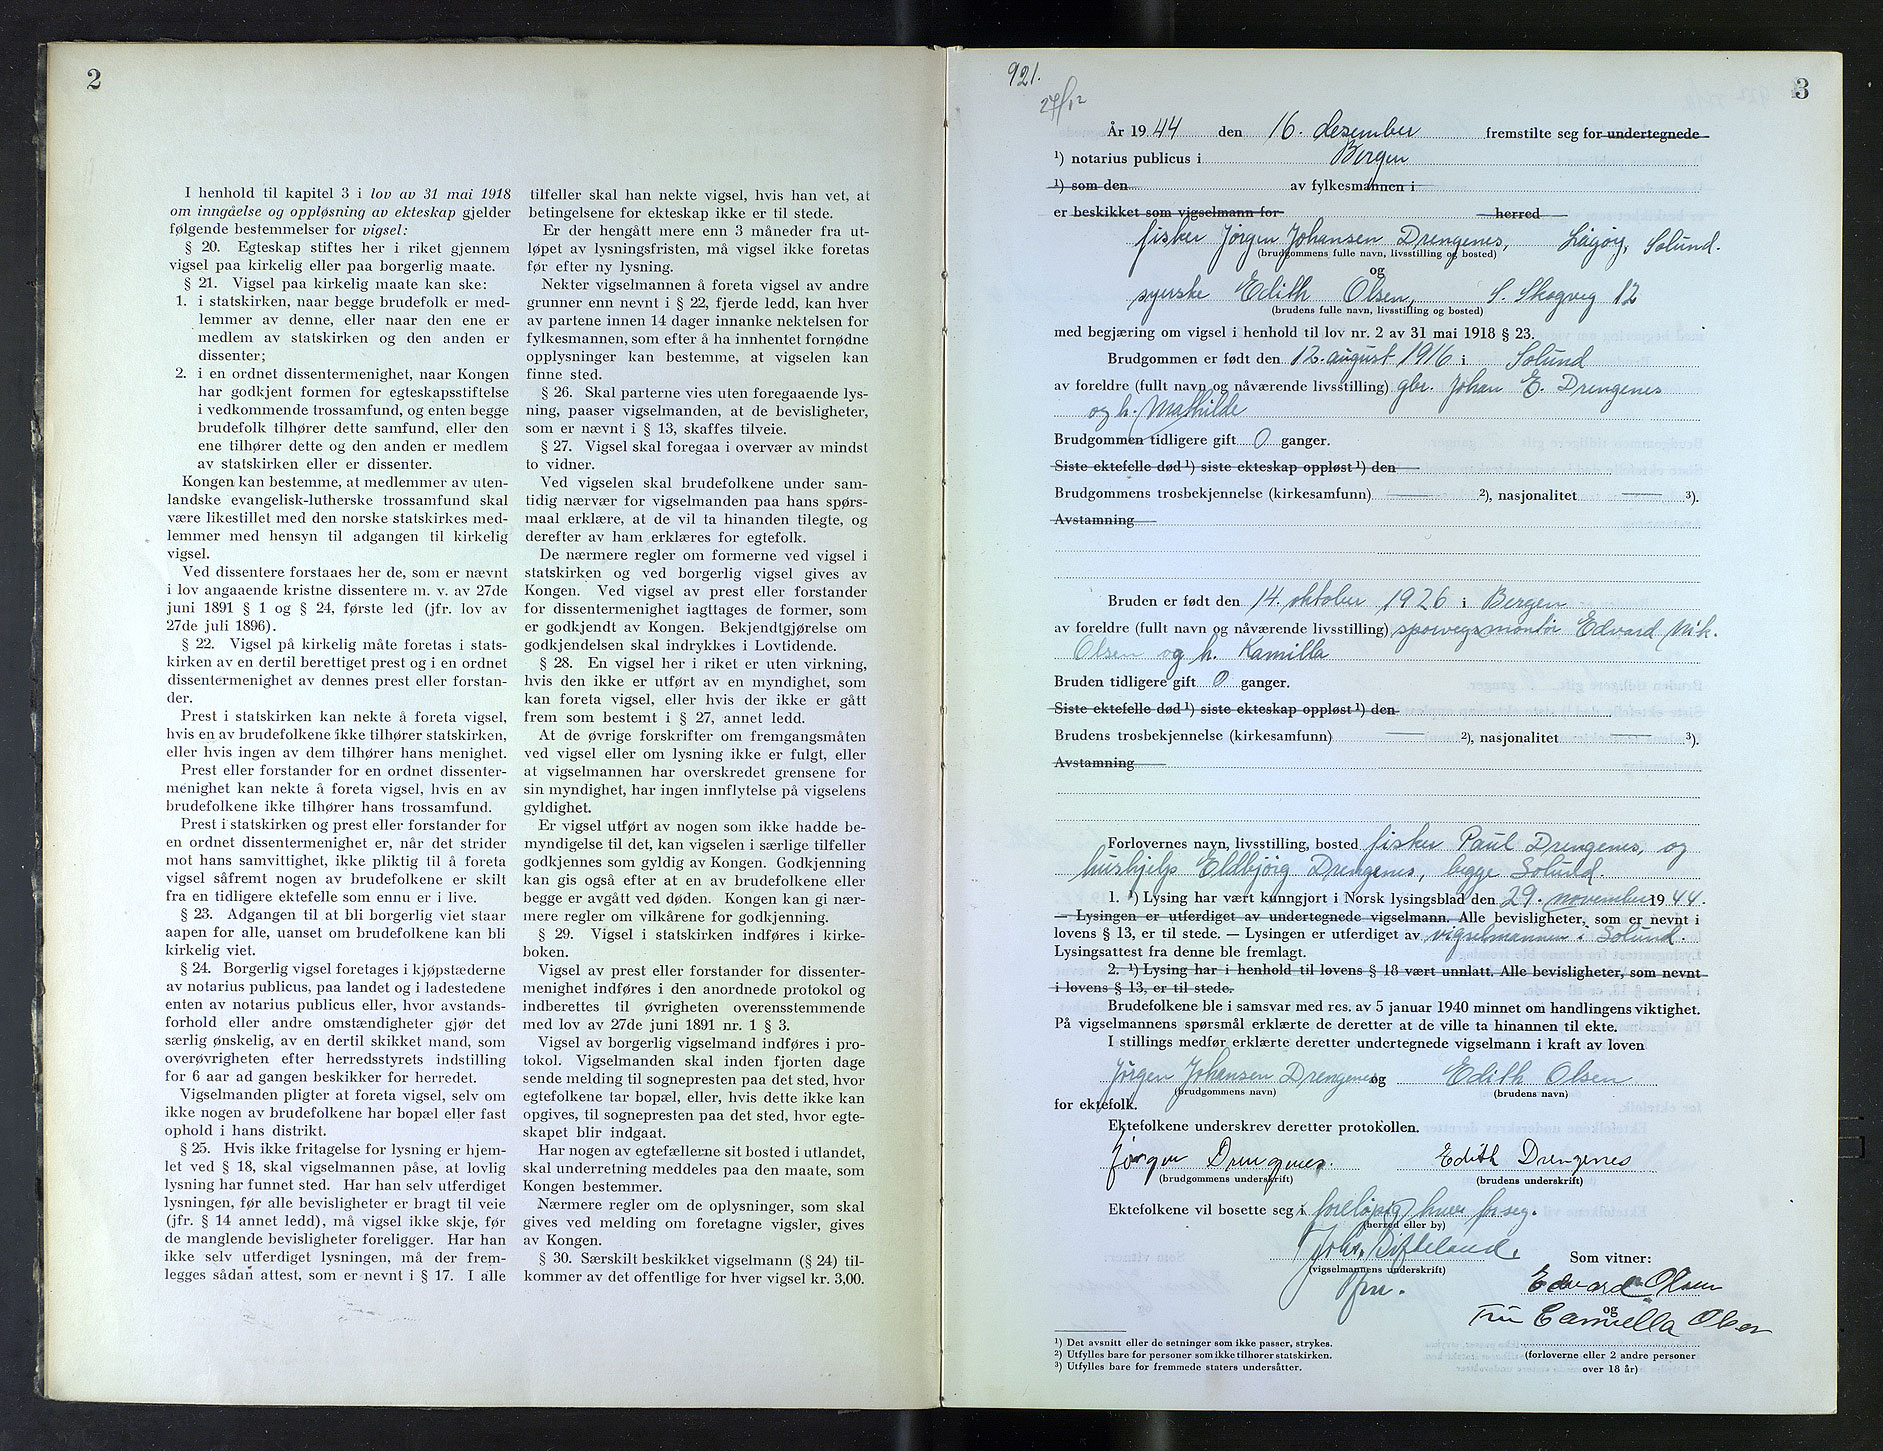 2
I henhold til kapitel 3 i lov av 31 mai 1918
om inngåelse og oppløsning av ekteskap gjelder
følgende bestemmelser for vigsel:
§ 20. Egteskap stiftes her i riket gjennem
vigsel paa kirkelig eller paa borgerlig maate.
§ 21. Vigsel paa kirkelig maate kan ske:
1. i statskirken, naar begge brudefolk er med-
lemmer av denne, eller naar den ene er
medlem av statskirken og den anden er
dissenter;
2. i en ordnet dissentermenighet, naar Kongen
har godkjent formen for egteskapsstiftelse
i vedkommende trossamfund, og enten begge
brudefolk tilhører dette samfund, eller den
ene tilhører dette og den anden er medlem
av statskirken eller er dissenter.
Kongen kan bestemme, at medlemmer av uten-
landske evangelisk-lutherske trossamfund skal
være likestillet med den norske statskirkes med-
lemmer med hensyn til adgangen til kirkelig
vigsel.
Ved dissentere forstaaes her de, som er nævnt
i lov angaaende kristne dissentere m. v. av 27de
juni 1891 § 1 og § 24, første led (jfr. lov av
27de juli 1896).
§ 22. Vigsel på kirkelig måte foretas i stats-
kirken av en dertil berettiget prest og i en ordnet
dissentermenighet av dennes prest eller forstan-
der.
Prest i statskirken kan nekte å foreta vigsel,
hvis en av brudefolkene ikke tilhører statskirken,
eller hvis ingen av dem tilhører hans menighet.
Prest eller forstander for en ordnet dissenter-
menighet kan nekte å foreta vigsel, hvis en av
brudefolkene ikke tilhører hans trossamfund.
Prest i statskirken og prest eller forstander for
en ordnet dissentermenighet er, når det strider
mot hans samvittighet, ikke pliktig til å foreta
vigsel såfremt nogen av brudefolkene er skilt
fra en tidligere ektefelle som ennu er i live.
§ 23. Adgangen til at bli borgerlig viet staar
aapen for alle, uanset om brudefolkene kan bli
kirkelig viet.
§ 24. Borgerlig vigsel foretages i kjøpstæderne
av notarius publicus, paa landet og i ladestedene
enten av notarius publicus eller, hvor avstands-
forhold eller andre omstændigheter gjør det
særlig ønskelig, av en dertil skikket mand, som
overøvrigheten efter herredsstyrets indstilling
for 6 aar ad gangen beskikker for herredet.
Vigselmanden pligter at foreta vigsel, selv om
ikke nogen av brudefolkene har bopæl eller fast
ophold i hans distrikt.
§ 25. Hvis ikke fritagelse for lysning er hjem-
let ved § 18, skal vigselmannen påse, at lovlig
lysning har funnet sted. Har han selv utferdiget
lysningen, før alle bevisligheter er bragt til veie
(jfr. § 14 annet ledd), må vigsel ikke skje, før
de manglende bevisligheter foreligger. Har han
ikke selv utferdiget lysningen, må der frem-
legges sådan attest, som er nevnt i § 17. I alle
tilfeller skal han nekte vigsel, hvis han vet, at
betingelsene for ekteskap ikke er til stede.
Er der hengått mere enn 3 måneder fra ut-
løpet av lysningsfristen, må vigsel ikke foretas
før efter ny lysning.
Nekter vigselmannen å foreta vigsel av andre
grunner enn nevnt i § 22, fjerde ledd, kan hver
av partene innen 14 dager innanke nektelsen for
fylkesmannen, som efter å ha innhentet fornødne
opplysninger kan bestemme, at vigselen kan
finne sted.
§ 26. Skal parterne vies uten foregaaende lys-
ning, paaser vigselmanden, at de bevisligheter,
som er nævnt i § 13, skaffes tilveie.
§ 27. Vigsel skal foregaa i overvær av mindst
to vidner.
Ved vigselen skal brudefolkene under sam-
tidig nærvær for vigselmanden paa hans spørs-
maal erklære, at de vil ta hinanden tilegte, og
derefter av ham erklæres for egtefolk.
De nærmere regler om formerne ved vigsel i
statskirken og ved borgerlig vigsel gives av
Kongen. Ved vigsel av prest eller forstander
for dissentermenighet iagttages de former, som
er godkjendt av Kongen. Bekjendtgjørelse om
godkjendelsen skal indrykkes i Lovtidende.
§ 28. En vigsel her i riket er uten virkning,
hvis den ikke er utført av en myndighet, som
kan foreta vigsel, eller hvis der ikke er gått
frem som bestemt i § 27, annet ledd.
At de øvrige forskrifter om fremgangsmåten
ved vigsel eller om lysning ikke er fulgt, eller
at vigselmannen har overskredet grensene for
sin myndighet, har ingen innflytelse på vigselens
gyldighet.
Er vigsel utført av nogen som ikke hadde be-
myndigelse til det, kan vigselen i særlige tilfeller
godkjennes som gyldig av Kongen. Godkjenning
kan gis også efter at en av brudefolkene eller
begge er avgått ved døden. Kongen kan gi nær-
mere regler om vilkårene for godkjenning.
§ 29. Vigsel i statskirken indføres i kirke-
boken.
Vigsel av prest eller forstander for dissenter-
menighet indføres i den anordnede protokol og
indberettes til øvrigheten overensstemmende
med lov av 27de juni 1891 nr. 1 § 3.
Vigsel av borgerlig vigselmand indføres i pro-
tokol. Vigselmanden skal inden fjorten dage
sende melding til sognepresten paa det sted, hvor
egtefolkene tar bopæl, eller, hvis dette ikke kan
opgives, til sognepresten paa det sted, hvor egte-
skapet blir indgaat.
Har nogen av egtefællerne sit bosted i utlandet,
skal underretning meddeles paa den maate, som
Kongen bestemmer.
Nærmere regler om de oplysninger, som skal
gives ved melding om foretagne vigsler, gives
av Kongen.
§ 30. Særskilt beskikket vigselmann (§ 24) til-
kommer av det offentlige for hver vigsel kr. 3,00.
921.
27/12
3
År 1944 den 16. desember fremstilte seg for undertegnede
¹) notarius publicus i Bergen
¹) som den av fylkesmannen i
er beskikket som vigselmann for herred
fisker Jørgen Johansen Drengenes, Lågøy, Solund.
(brudgommens fulle navn, livsstilling og bosted)
og
syerske Edith Olsen, S. Skogveg 12
(brudens fulle navn, livsstilling og bosted)
med begjæring om vigsel i henhold til lov nr. 2 av 31 mai 1918 § 23.
Brudgommen er født den 12. august 1916 i Solund
av foreldre (fullt navn og nåværende livsstilling) gbr. Johan E. Drengenes
og h. Mathilde
Brudgommen tidligere gift 0 ganger.
Siste ektefelle død ¹) siste ekteskap oppløst ¹) den
Brudgommens trosbekjennelse (kirkesamfunn) — ²), nasjonalitet — ³).
Avstamning
Bruden er født den 14. oktober 1926 i Bergen
av foreldre (fullt navn og nåværende livsstilling) sporvegsmontør Edvard Nik.
Olsen og h. Kamilla
Bruden tidligere gift 0 ganger.
Siste ektefelle død ¹) siste ekteskap oppløst ¹) den
Brudens trosbekjennelse (kirkesamfunn) — ²), nasjonalitet — ³).
Avstamning
Forlovernes navn, livsstilling, bosted fisker Paul Drengenes, og
hushjelp Eldbjørg Drengenes, begge Solund.
1. ¹) Lysing har vært kunngjort i Norsk lysingsblad den 29. november 1944.
— Lysingen er utferdiget av undertegnede vigselmann. Alle bevisligheter, som er nevnt i
lovens § 13, er til stede. — Lysingen er utferdiget av vigselmannen i Solund.
Lysingsattest fra denne ble fremlagt.
2. ¹) Lysing har i henhold til lovens § 18 vært unnlatt. Alle bevisligheter, som nevnt
i lovens § 13, er til stede.
Brudefolkene ble i samsvar med res. av 5 januar 1940 minnet om handlingens viktighet.
På vigselmannens spørsmål erklærte de deretter at de ville ta hinannen til ekte.
I stillings medfør erklærte deretter undertegnede vigselmann i kraft av loven
Jørgen Johansen Drengenes og Edith Olsen
(brudgommens navn) (brudens navn)
for ektefolk.
Ektefolkene underskrev deretter protokollen.
Jørgen Drengenes. Edith Drengenes
(brudgommens underskrift) (brudens underskrift)
Ektefolkene vil bosette seg i foreløpig hver for seg.
(herred eller by)
Som vitner:
(vigselmannens underskrift)
Edvard Olsen
og
Fru Camilla Olsen
(forloverne eller 2 andre personer
over 18 år)
¹) Det avsnitt eller de setninger som ikke passer, strykes.
²) Utfylles bare for personer som ikke tilhører statskirken.
³) Utfylles bare for fremmede staters undersåtter.